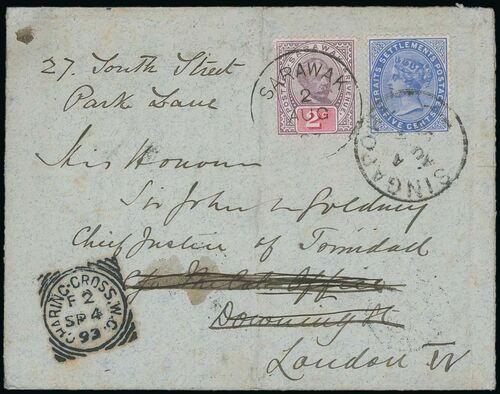 27. South Street
Park Lane
SARAWAK
2
AUG
POSTAGE SARAWAK
2c
STRAITS SETTLEMENTS POSTAGE
FIVE CENTS
SINGAPORE
AU
4
His Honour
Sir John W Goldney
Chief Justice of Trinidad
c/o The Colonial Office
Downing St
London W
CHARING·CROSS.W.C.
F 2
SP 4
93